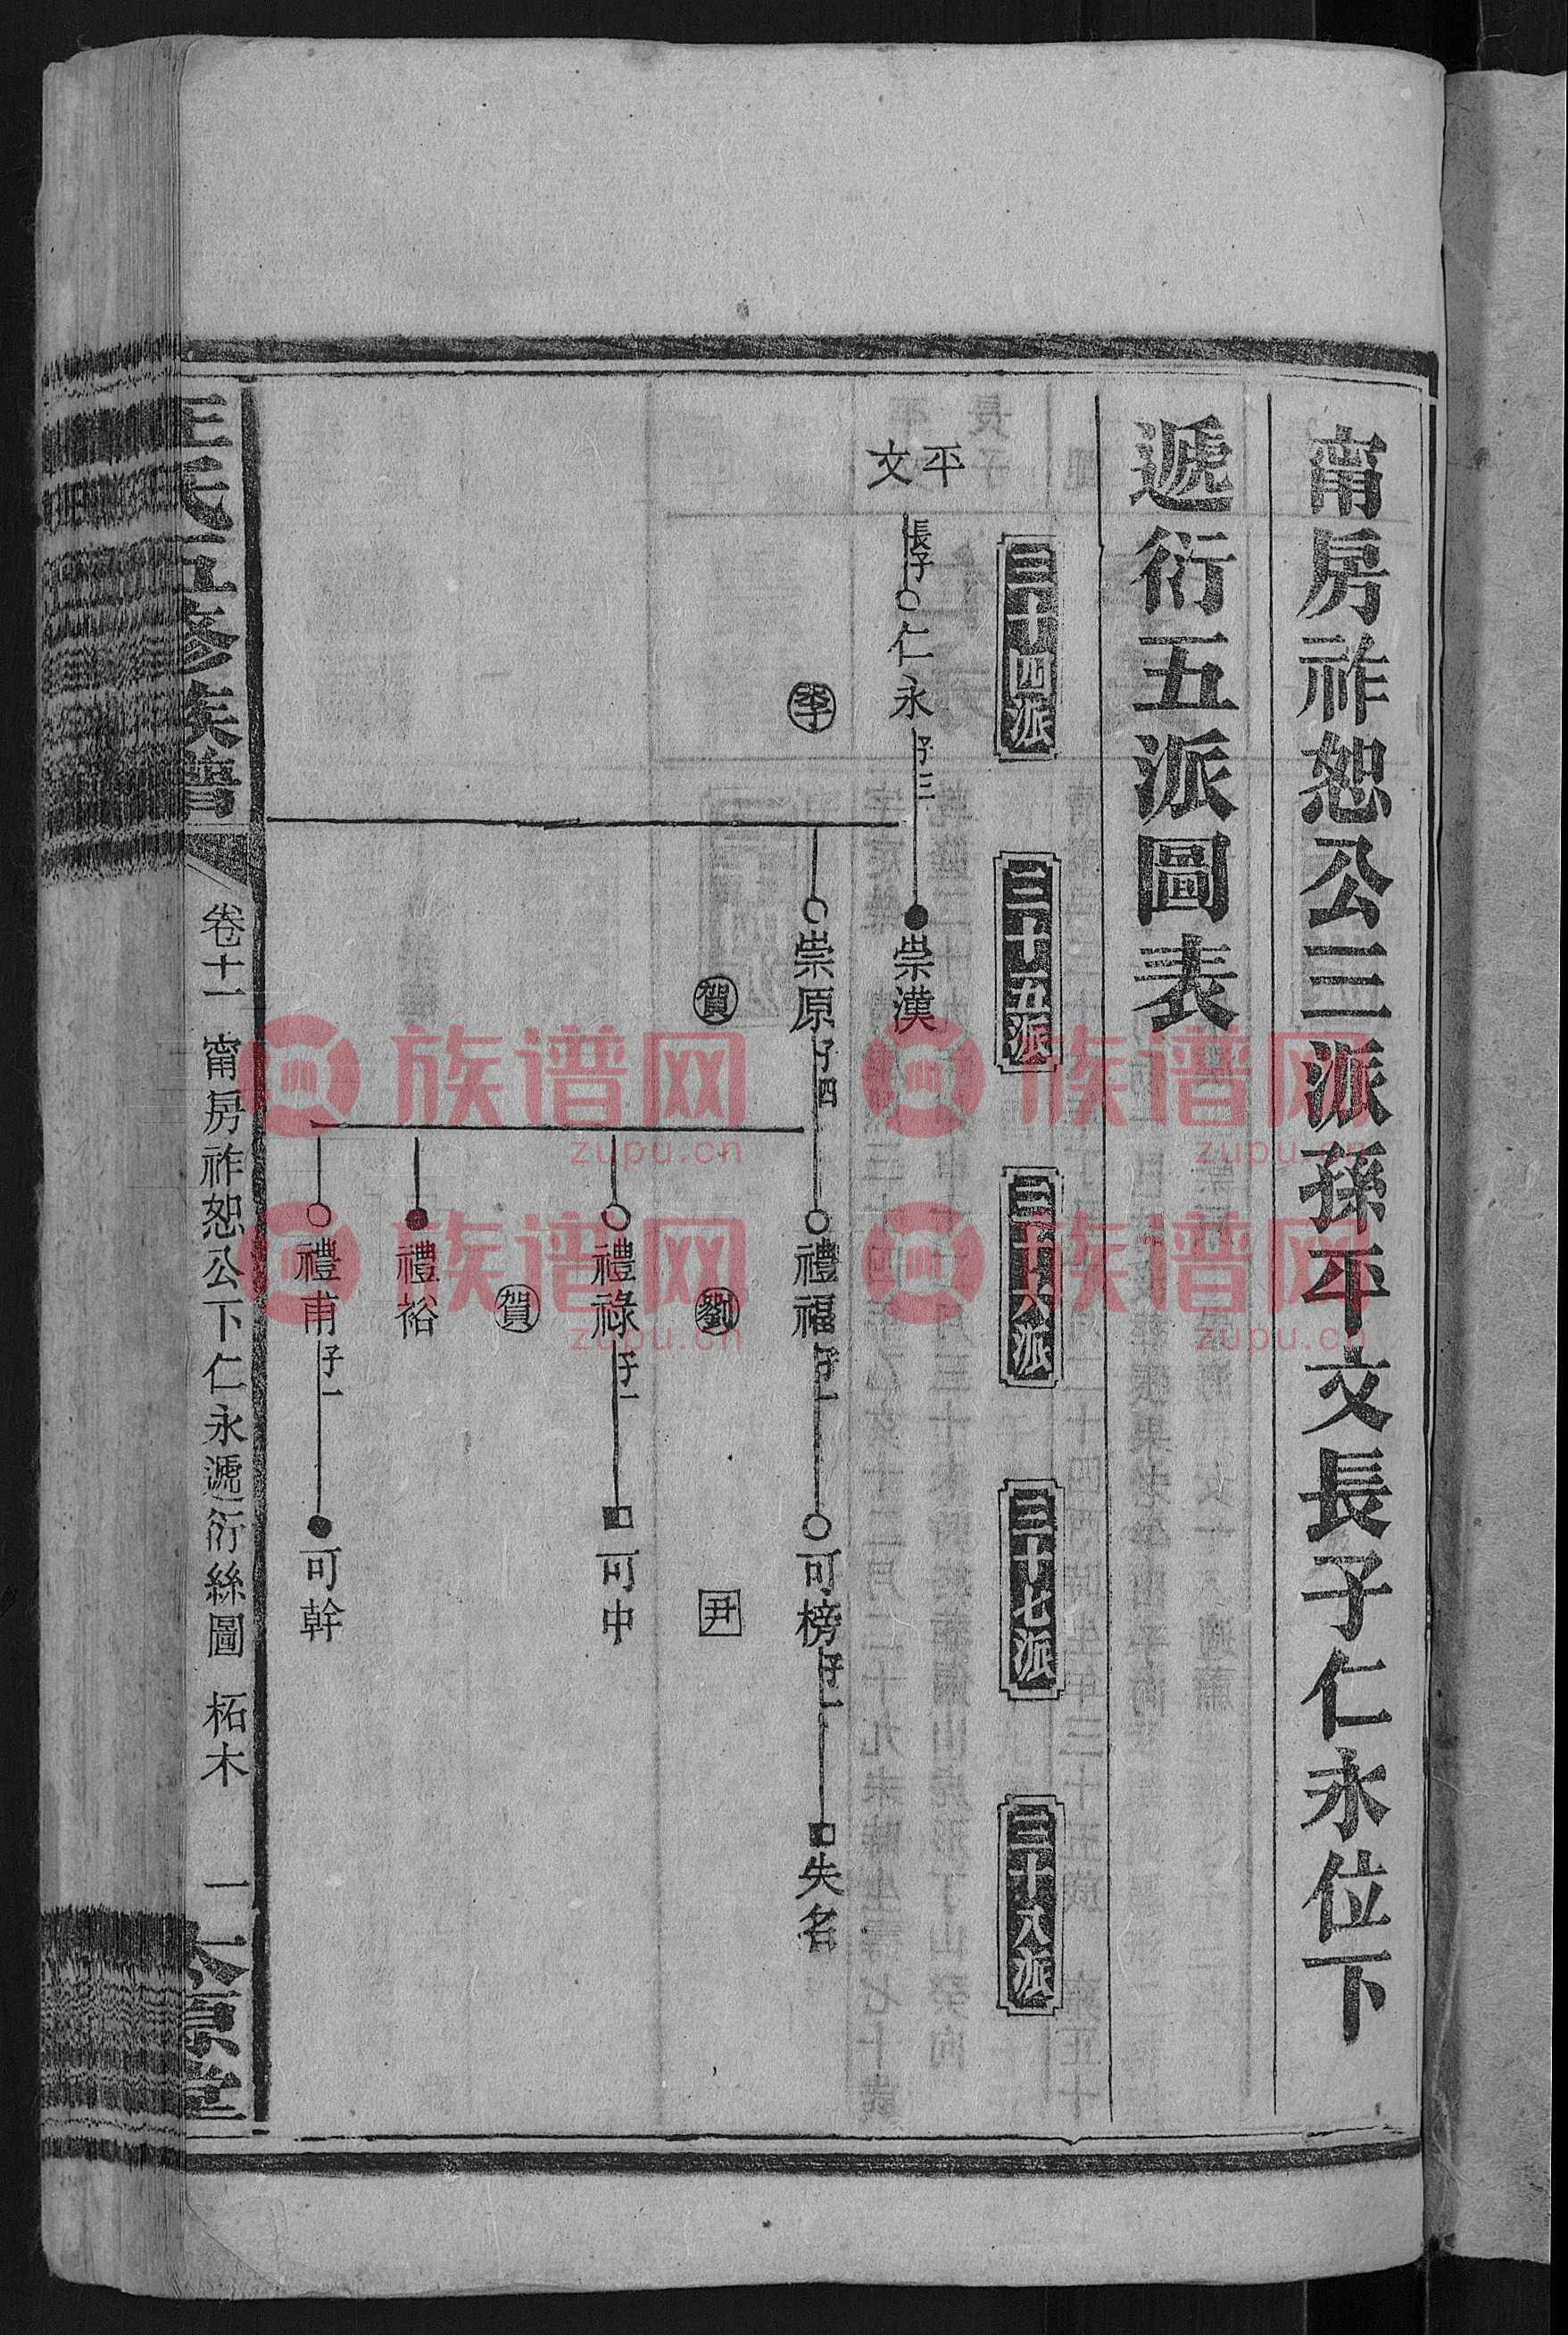 甯房祚恕公三派孫平文長子仁永位下
遞衍五派圖表
三十四派
三十五派
三十六派
三十七派
三十八派
平文
長子
仁永
子三
崇漢
李
崇原
子四
禮福
子一
可榜
子一
失名
賀
劉
尹
禮祿
子一
可中
賀
禮裕
禮甫
子一
可幹
王氏五修族譜
卷十一 甯房祚恕公下仁永遞衍絲圖 柘木 一
太原堂
族谱网 族谱网
zupu.cn zupu.cn
族谱网 族谱网
zupu.cn zupu.cn